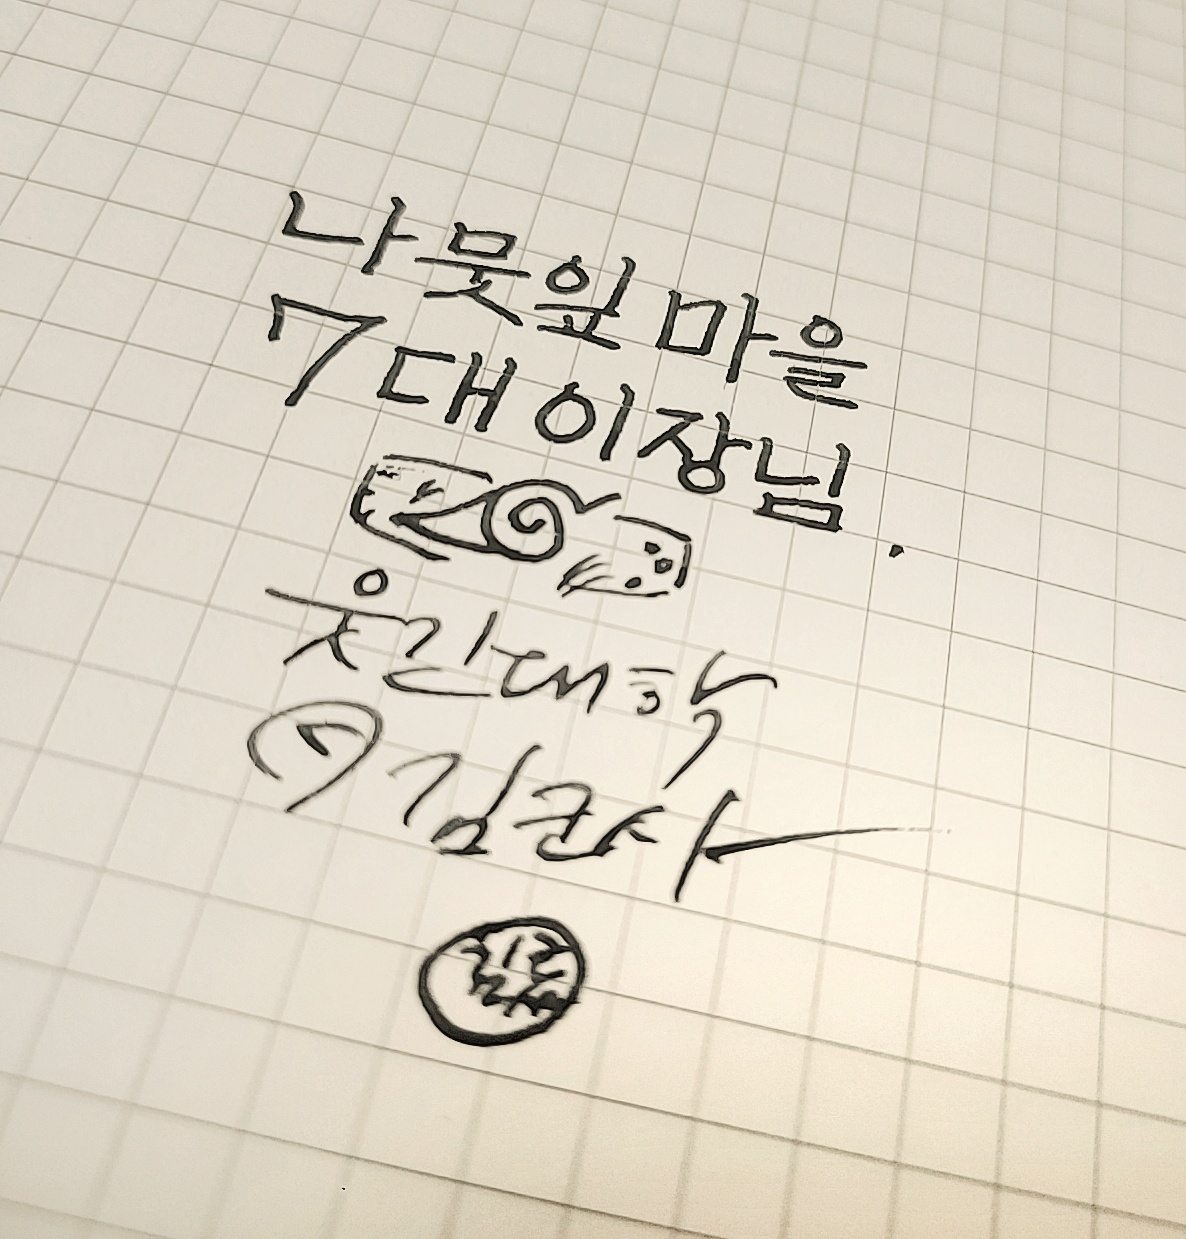 나뭇잎 마을
7대 이장님.
웃긴대학
김군사